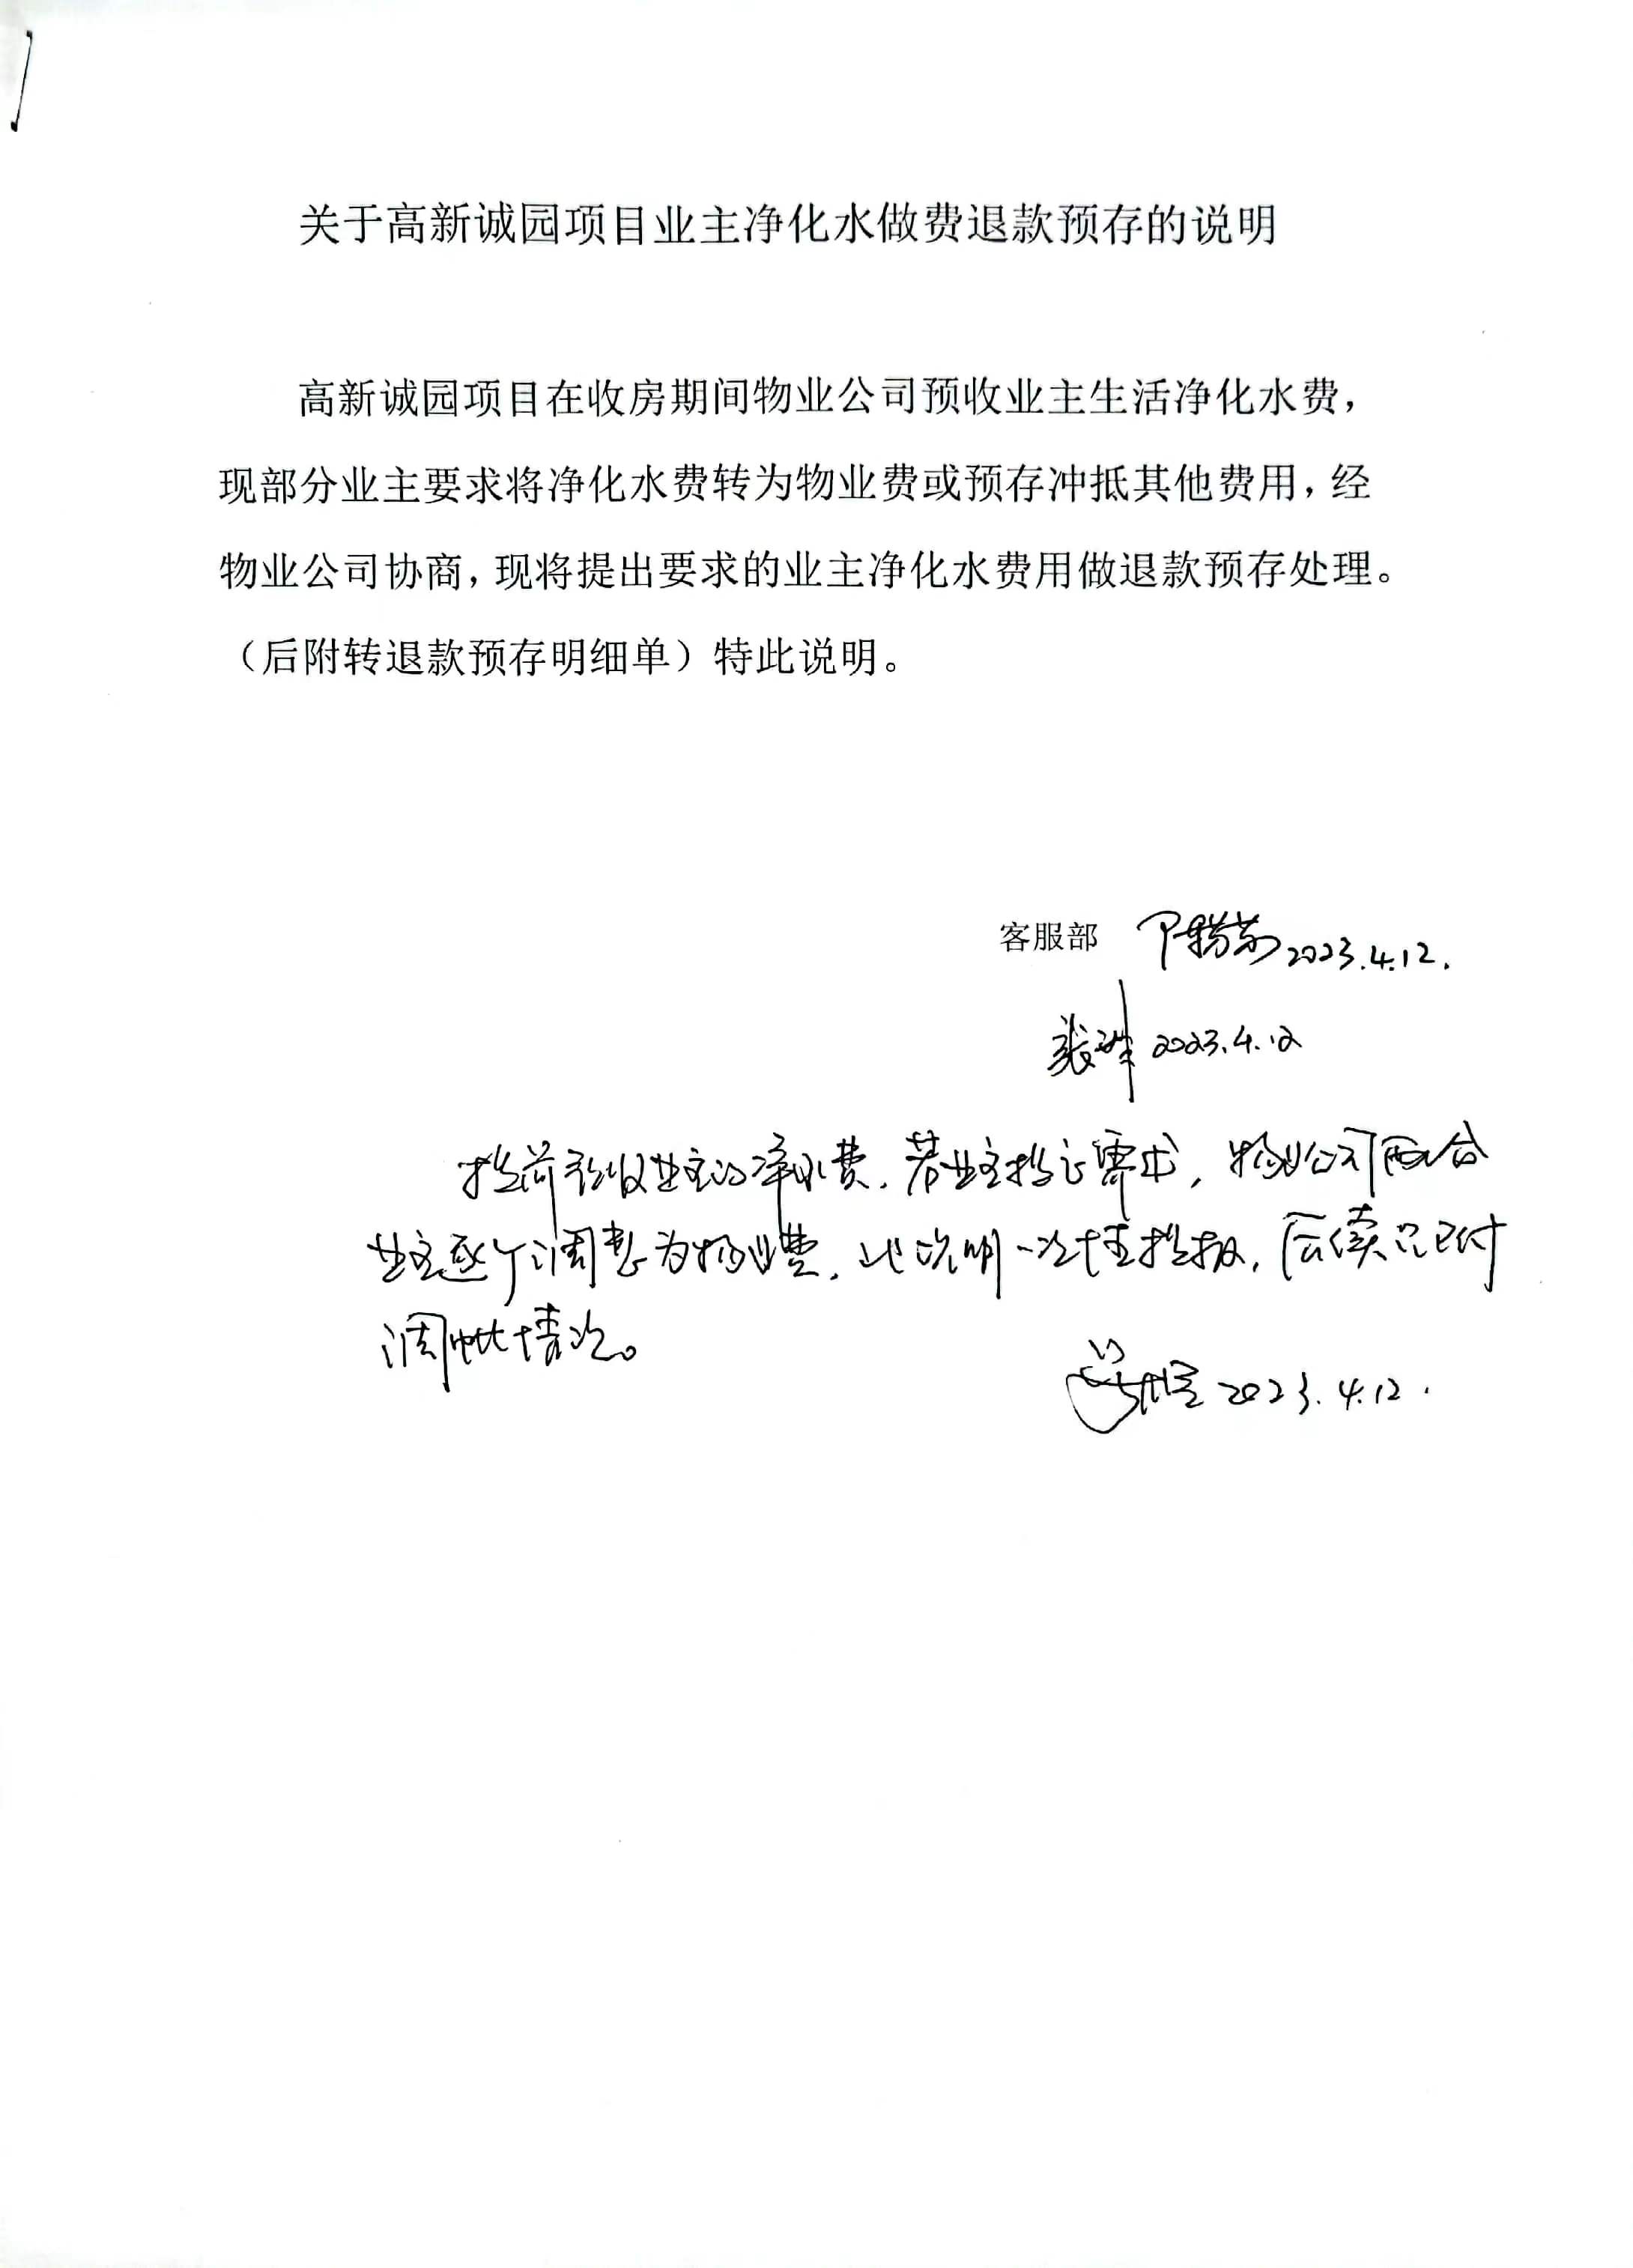 关于高新诚园项目业主净化水做费退款预存的说明
高新诚园项目在收房期间物业公司预收业主生活净化水费，
现部分业主要求将净化水费转为物业费或预存冲抵其他费用，经
物业公司协商，现将提出要求的业主净化水费用做退款预存处理。
（后附转退款预存明细单）特此说明。
客服部 2023.4.12.
张 2023.4.12
提前预收业主的净水费，若业主提出需求，物业公司配合
业主逐个调整为物业费，此说明一次性提报，后续只附
调账情况。
2023.4.12.